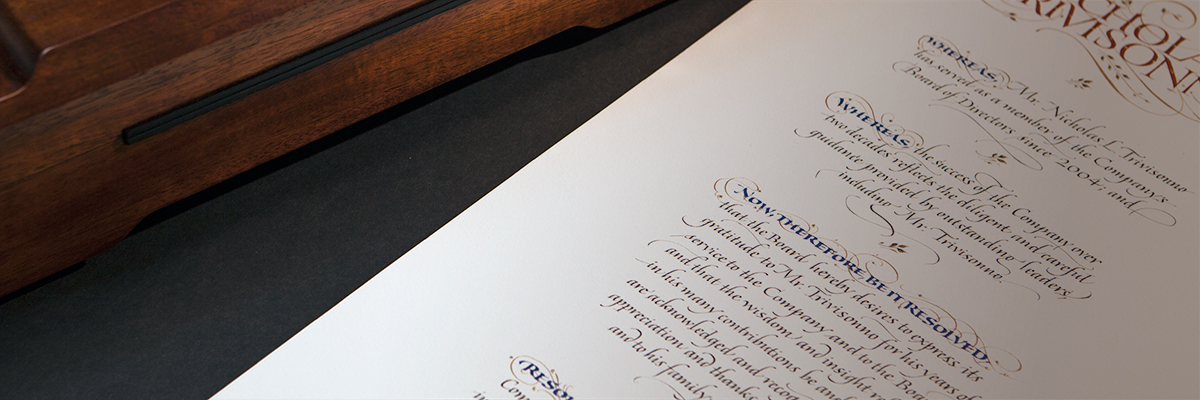 CHOLA
RIVISONN
WHEREAS, Mr. Nicholas L. Trivisonno
has served as a member of the Company's
Board of Directors since 2004; and
WHEREAS, the success of the Company over
two decades reflects the diligent and careful
guidance provided by outstanding leaders,
including Mr. Trivisonno.
NOW, THEREFORE BE IT RESOLVED,
that the Board hereby desires to express its
gratitude to Mr. Trivisonno for his years of
service to the Company and to the Boa
and that the wisdom and insight re
in his many contributions be and
are acknowledged and recog
appreciation and thanks
and to his family
RESO
Com